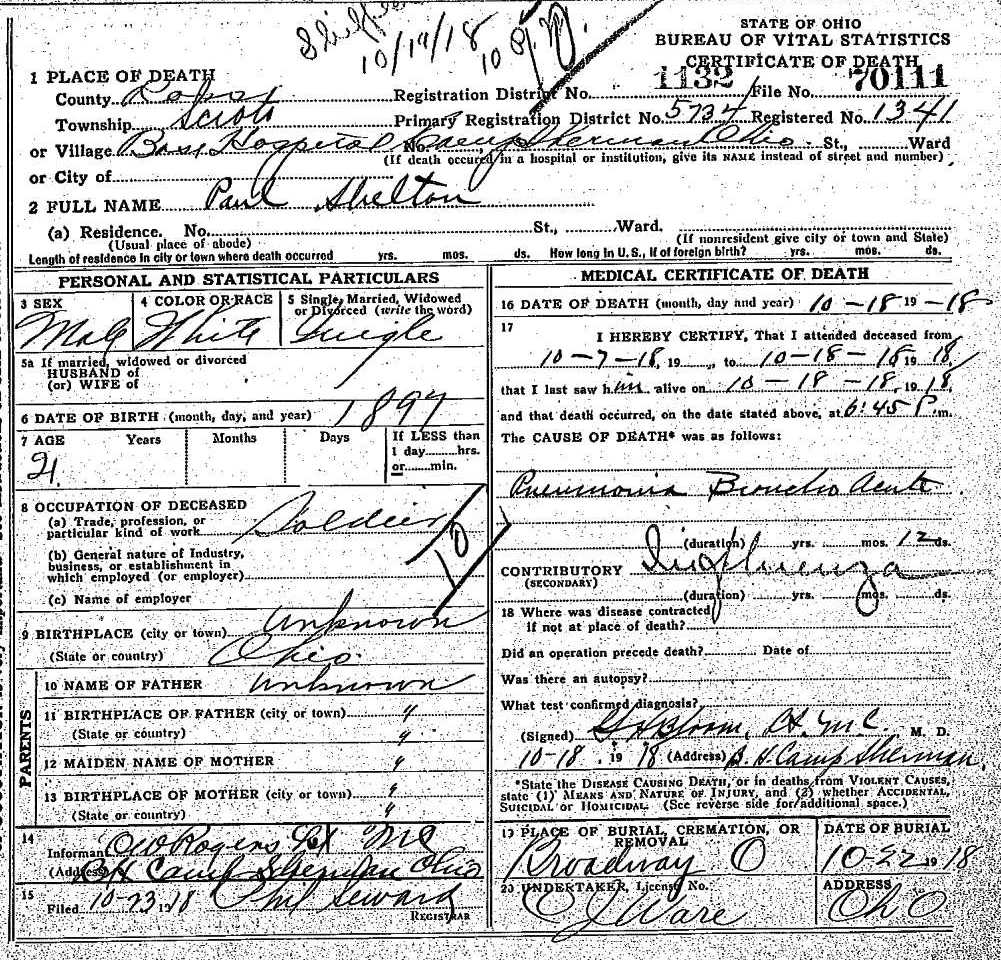 10/19/18 10
STATE OF OHIO
BUREAU OF VITAL STATISTICS
CERTIFICATE OF DEATH
1 PLACE OF DEATH
County Ross Registration District No. 1132 File No. 70111
Township Scioto Primary Registration District No. 5734 Registered No. 1341
or Village Base Hospital No. Camp Sherman Ohio. St., Ward
(If death occured in a hospital or institution, give its NAME instead of street and number)
or City of
2 FULL NAME Paul Shelton
(a) Residence. No. St., Ward.
(Usual place of abode) (If nonresident give city or town and State)
Length of residence in city or town where death occurred yrs. mos. ds. How long in U.S., if of foreign birth? yrs. mos. ds.
PERSONAL AND STATISTICAL PARTICULARS
3 SEX 4 COLOR OR RACE 5 Single, Married, Widowed
or Divorced (write the word)
Male White Single
5a If married, widowed or divorced
HUSBAND of
(or) WIFE of
6 DATE OF BIRTH (month, day, and year) 1897
7 AGE Years Months Days If LESS than
1 day hrs.
or min.
21
8 OCCUPATION OF DECEASED
(a) Trade, profession, or
particular kind of work Soldier
(b) General nature of Industry,
business, or establishment in
which employed (or employer)
(c) Name of employer
10
9 BIRTHPLACE (city or town) Unknown
(State or country) Ohio.
PARENTS
10 NAME OF FATHER Unknown
11 BIRTHPLACE OF FATHER (city or town) "
(State or country) "
12 MAIDEN NAME OF MOTHER "
13 BIRTHPLACE OF MOTHER (city or town) "
(State or country) "
14
Informant O W Rogers Lt MC
(Address) B H Camp Sherman Ohio
15
Filed 10-23 18 Phil Seward
REGISTRAR
MEDICAL CERTIFICATE OF DEATH
16 DATE OF DEATH (month, day and year) 10-18 19 -18
17
I HEREBY CERTIFY, That I attended deceased from
10-7-18, 19 , to 10-18-18 19 18
that I last saw him alive on 10-18-18, 19 18,
and that death occurred, on the date stated above, at 6:45 P. m.
The CAUSE OF DEATH* was as follows:
Pneumonia Broncho Acute
(duration) yrs. mos. 12 ds.
CONTRIBUTORY Influenza
(SECONDARY)
(duration) yrs. mos. ds.
18 Where was disease contracted
if not at place of death?
Did an operation precede death? Date of
Was there an autopsy?
What test confirmed diagnosis?
(Signed) Bloom, Lt. M C M. D.
10-18 . 19 18 (Address) B. H Camp Sherman.
*State the DISEASE CAUSING DEATH, or in deaths from VIOLENT CAUSES,
state (1) MEANS AND NATURE OF INJURY, and (2) whether ACCIDENTAL,
SUICIDAL or HOMICIDAL. (See reverse side for additional space.)
19 PLACE OF BURIAL, CREMATION, OR
REMOVAL
Broadway O
DATE OF BURIAL
10-22 19 18
20 UNDERTAKER, License No.
C J Ware
ADDRESS
Ch O